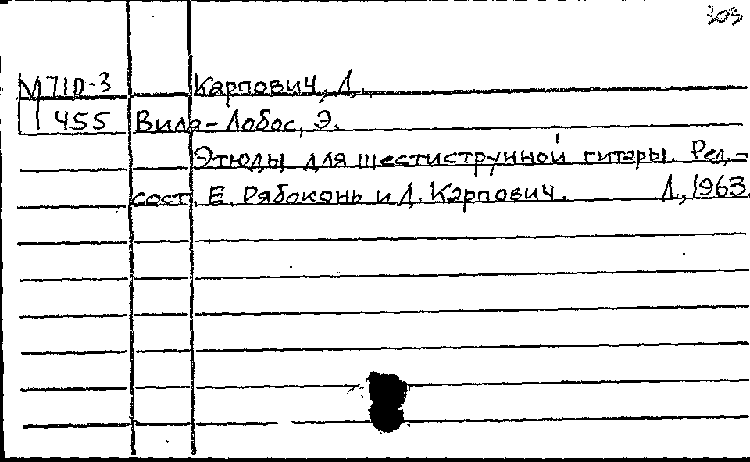 305
М710-3 Карпович, Л.
455 Вила-Лобос, Э.
Этюды для шестиструнной гитары. Ред.-
сост. Е. Рябоконь и Л. Карпович. Л., 1963.